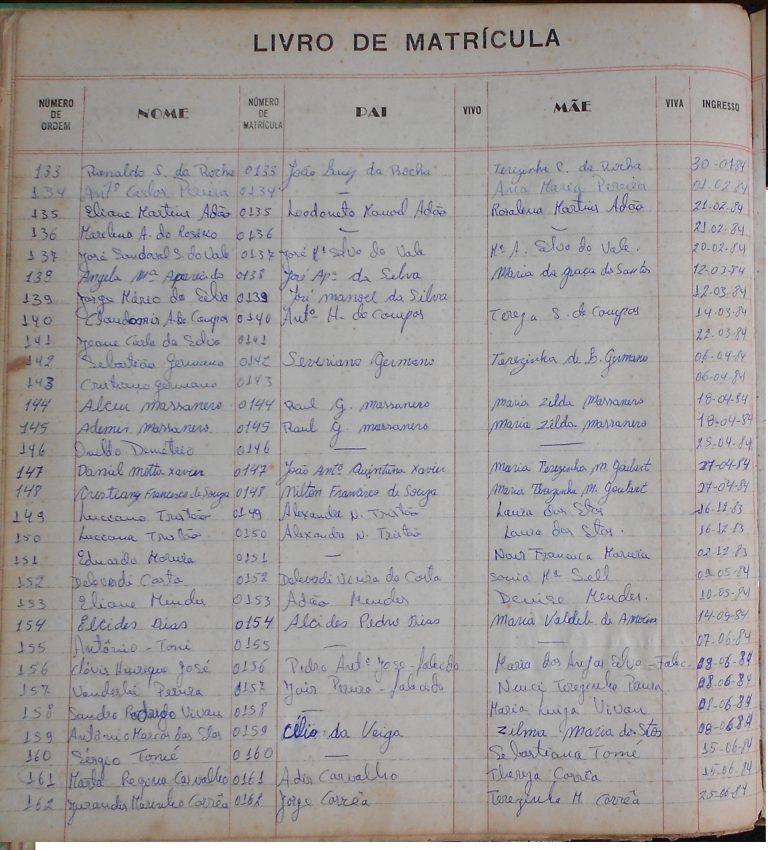 LIVRO DE MATRÍCULA
NÚMERO DE ORDEM NOME NÚMERO DE MATRÍCULA PAI VIVO MÃE VIVA INGRESSO
133 Ronaldo S. da Rocha 0133 João Luiz da Rocha Terezinha P. da Rocha 30-01-84
134 Antº Carlos Pereira 0134 — Ana Maria Pereira 01.02.84
135 Eliane Martins Adão 0135 Leodoneto Manoel Adão Rosalena Martins Adão 21.02.84
136 Marilena A. do Rosário 0136 — — 21.02.84
137 José Sandoval S. do Vale 0137 José Mº Silva do Vale Mª A. Silva do Vale. 20-02-84
139 Angela Mª Aparecida 0138 José Apº da Silva Maria da graça do Santos 12-03-84
139 Jorge Mário da Silva 0139 José manoel da Silva 12-03-84
140 Claudomir A. de Campos 0140 Antº H. de Campos Tereza S. de Campos 14-03-84
141 Jeane Carla da Silva 0141 22.03-84
142 Sebastião Germano 0142 Severiano Germano Terezinha de B. Germano 06-04-84
143 Cristiano Germano 0143 06-04-84
144 Alceu Massanero 0144 Raul G. Massanero Maria Zilda Massanero 18-04-84
145 Ademir Massanero 0145 Raul G massanero Maria Zilda Massanero 18-04-84
146 Demétrio 0146 — — 25-04-84
147 Daniel Motta Xavier 0147 João Antº Quintana Xavier Maria Terezinha M. Goulart 27-04-84
148 Cristiany Francisco de Souza 0148 Milton Francisco de Souza Maria Terezinha M. Goulart 27-04-84
149 Luccano Tristão 0149 Alexandre N. Tristão Laura dos Stos 16-12-83
150 Luccana Tristão 0150 Alexandre N. Tristão Laura dos Stos. 16-12-83
151 Eduardo Moreira 0151 — Nair Francisca Moreira 02-12-83
152 Delevedi Costa 0152 Delevedi Vieira da Costa Sonia Mª Sell 09-05-84
153 Eliane Mendes 0153 Adão Mendes Denise Mendes. 10-05-84
154 Elcides Dias 0154 Alcides Pedro Dias Maria Valdete de Amorim 14-05-84
155 Antônio - Toni 0155 — — 07.06-84
156 Clóvis Henrique José 0156 Pedro Antº José - falecido Maria dos Anjos Silva - Falec. 08-06-84
157 Vanderléi Pereira 0157 Jair Pereira - falecido Nenci Terezinha Pereira 08-06-84
158 Sandro Rodrigo Vivan 0158 — Maria Luiza Vivan 08-06-84
159 Antônio Marcos dos Stos 0159 Célio da Veiga Zilma Maria dos Stos 08-06-84
160 Sérgio Tomé 0160 — Sebastiana Tomé 15-06-84
161 Marta Regina Carvalho 0161 Adir Carvalho Thereza Corrêa 15-06-84
162 Jurandir Marinho Corrêa 0162 Jorge Corrêa Terezinha M. Corrêa 25-06-84